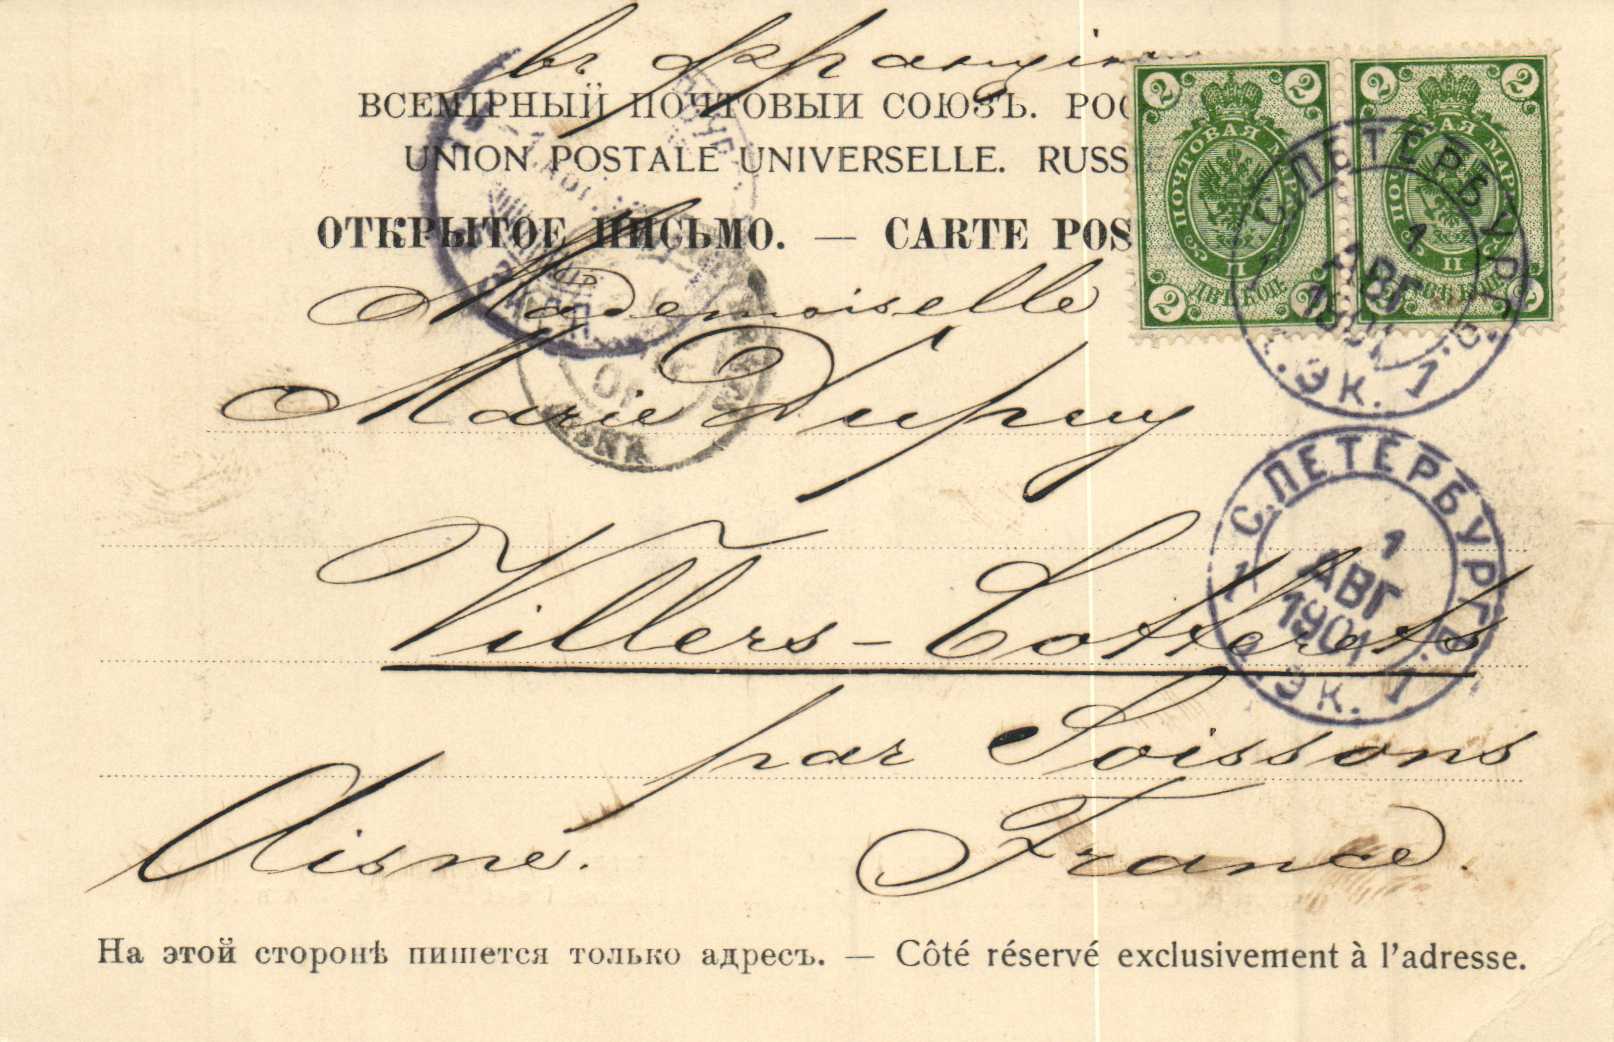 въ Францiю
ВСЕМІРНЫЙ ПОЧТОВЫЙ СОЮЗЪ. РОС
UNION POSTALE UNIVERSELLE. RUSS
ОТКРЫТОЕ ПИСЬМО. — CARTE POS
2 2 ПОЧТОВАЯ МАР II 2 ДВѢ КОП.
2 2 МАР II 2
С.ПЕТЕРБУРГ 1 АВГ ЭК. 1
Mademoiselle
Marie Dupuy
С.ПЕТЕРБУРГ 1 АВГ 1901 ЭК. 1
AISNE
Villers-Cotterets
par Soissons
Aisne. France.
На этой сторонѣ пишется только адресъ. — Côté réservé exclusivement à l'adresse.